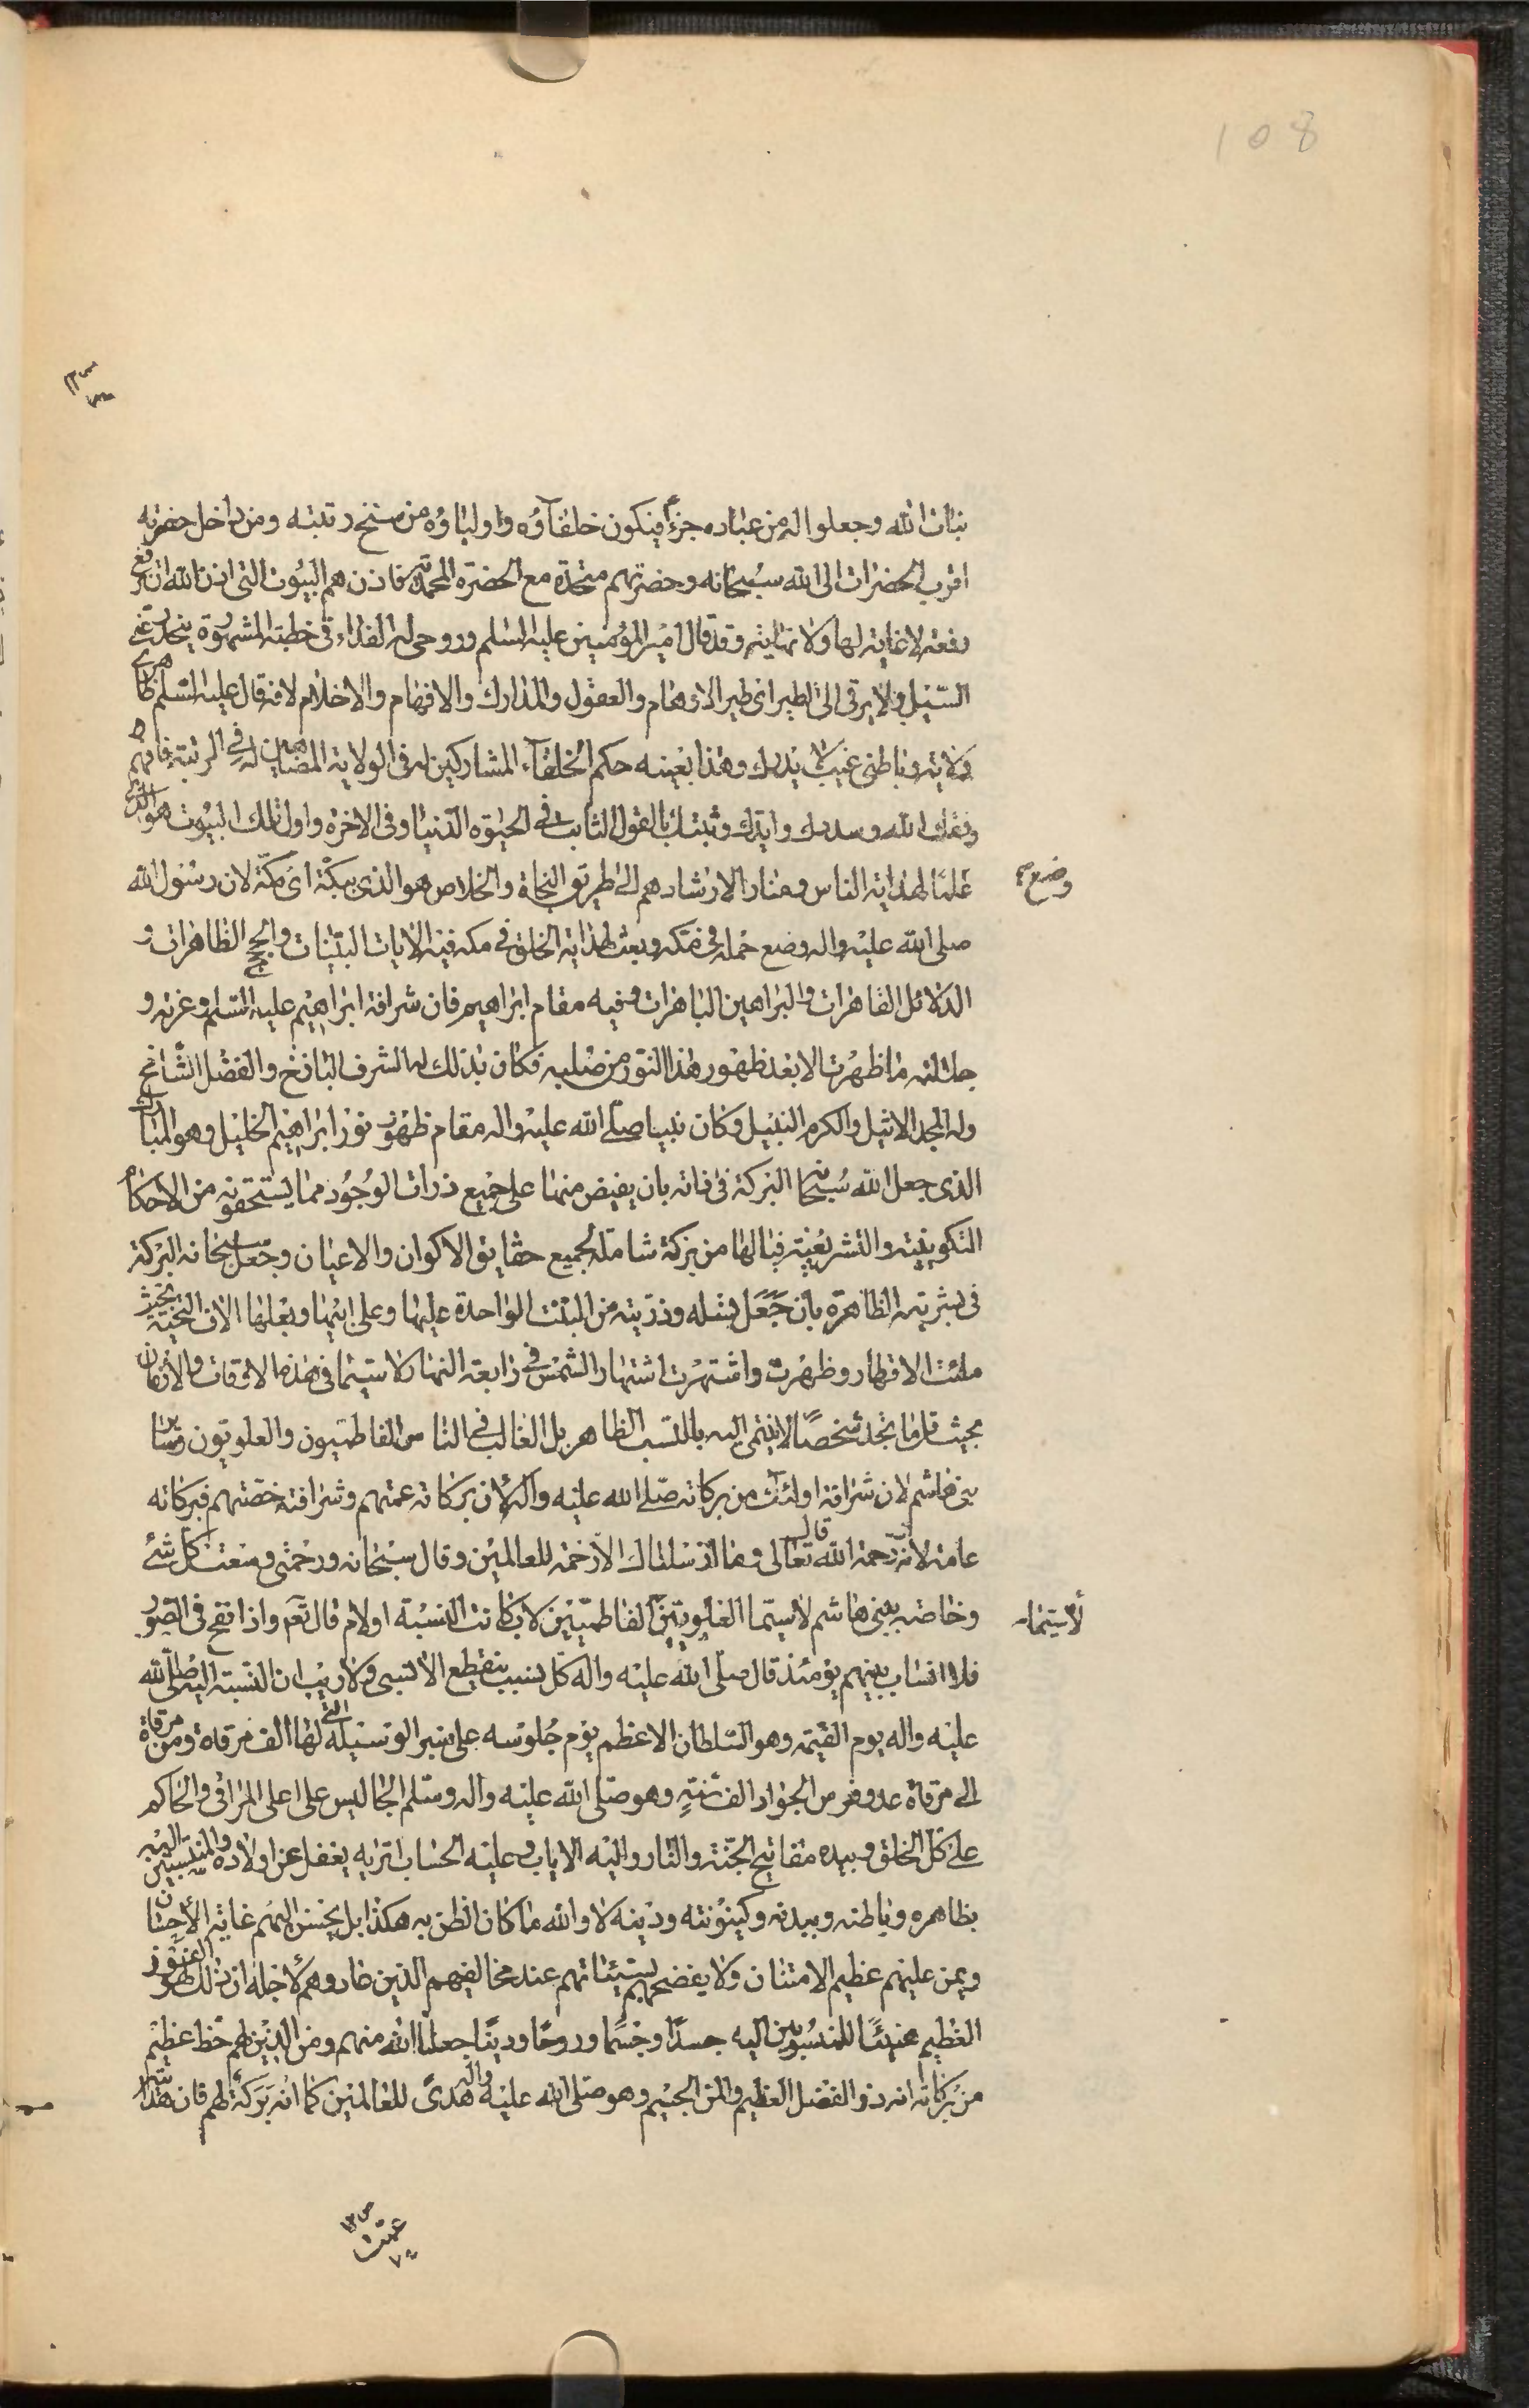 108
بنات الله وجعلوا له من عباده جزءا فيكون خلفاؤه واولياؤه من سنخ رتبته ومن داخل حضرته
اقرب الحضرات الى الله سبحانه وحضرتهم متحدة مع الحضرة المحمدية فاذن هم البيوت التي اذن الله ان ترفع
رفعة لا غاية لها ولا نهاية وقد قال امير المؤمنين عليه السلم وروحي له الفداء في خطبته المشهورة ينحدر عني
السيل ولا يرقى الى الطير اي طير الاوهام والعقول والمدارك والافهام والاحلام لانه قال عليه السلم ظاهري
ولاية وباطني غيب لا يدرك وهذا بعينه حكم الخلفاء المشاركين له في الولاية المضاهين له في الرتبة فافهم
وفقك الله وسددك وايدك وثبتك بالقول الثابت في الحيوة الدنيا وفي الاخرة واول تلك البيوت هو الذي
وضع
علما لهداية الناس ومنارا لارشادهم الى طريق النجاة والخلاص هو الذي ببكة اي مكة لان رسول الله
صلى الله عليه واله وضع حمله في مكه وبعث لهداية الخلق في مكه فيه الايات البينات والحجج الظاهرات و
الدلائل القاهرات والبراهين الباهرات وفيه مقام ابراهيم فان شرافة ابراهيم عليه السلم وعزته و
جلالته ما ظهرت الا بعد ظهور هذا النور من صلبه فكان بذلك له الشرف الباذخ والفضل الشامخ
وله المجد الاثيل والكرم النبيل وكان نبينا صلى الله عليه واله مقام ظهور نور ابراهيم الخليل وهو المبارك
الذي جعل الله سبحانه البركة في ذاته بان يفيض منها على جميع ذرات الوجود مما يستحقونه من الاحكام
التكوينية والتشريعية فيا لها من بركة شاملة لجميع حقايق الاكوان والاعيان وجعل سبحانه البركة
في بشريته الظاهرة بان جعل نسله وذريته من البنت الواحدة عليها وعلى ابيها وبعلها الاف التحية بحيث
ملئت الاقطار وظهرت واشتهرت اشتهار الشمس في رابعة النهار لا سيما في هذه الاوقات والازمان
بحيث قلما تجد شخصا لا ينتمي اليه بالنسب الظاهر بل الغالب في الناس الفاطميون والعلويون وساير
بني هاشم لان شرافة اولئك من بركاته صلى الله عليه وآله لان بركاته عمتهم وشرافته خصتهم فبركاته
عامة لانه رحمة الله قال تعالى وما ارسلناك الا رحمة للعالمين وقال سبحانه ورحمتي وسعت كل شئ
لاسيما
وخاصة ببني هاشم لاسيما العلويين الفاطميين لاب كانت النسبة او لام قال تعم واذا نفخ في الصور
فلا انساب بينهم يومئذ قال صلى الله عليه واله كل نسب ينقطع الا نسبي ولا ريب ان النسبة اليه صلى الله
عليه واله يوم القيمة وهو السلطان الاعظم يوم جلوسه على منبر الوسيلة التي لها الف مرقاة ومن مرقاة
الى مرقاة عدو فرس الجواد الف سنة وهو صلى الله عليه وآله وسلم الجالس على اعلى المراقي والحاكم
على كل الخلق وبيده مفاتيح الجنة والنار واليه الاياب وعليه الحساب اتريه يغفل عن اولاده والمنتسبين اليه
بظاهره وباطنه وببدنه وكينونته ودينه لا والله ما كان الظن به هكذا بل يحسن اليهم غاية الاحسان
ويمن عليهم عظيم الامتنان ولا يفضحهم بسيئاتهم عند مخالفيهم الذين عادوهم لاجله ان ذلك لهو الفوز
العظيم هنيئا للمنسوبين اليه جسدا وجسما وروحا ودينا جعلنا الله منهم ومن الذين لهم حظ عظيم
من بركاته انه ذو الفضل العظيم والمن الجسيم وهو صلى الله عليه واله هدى للعالمين كما انه بركة لهم فان هذا